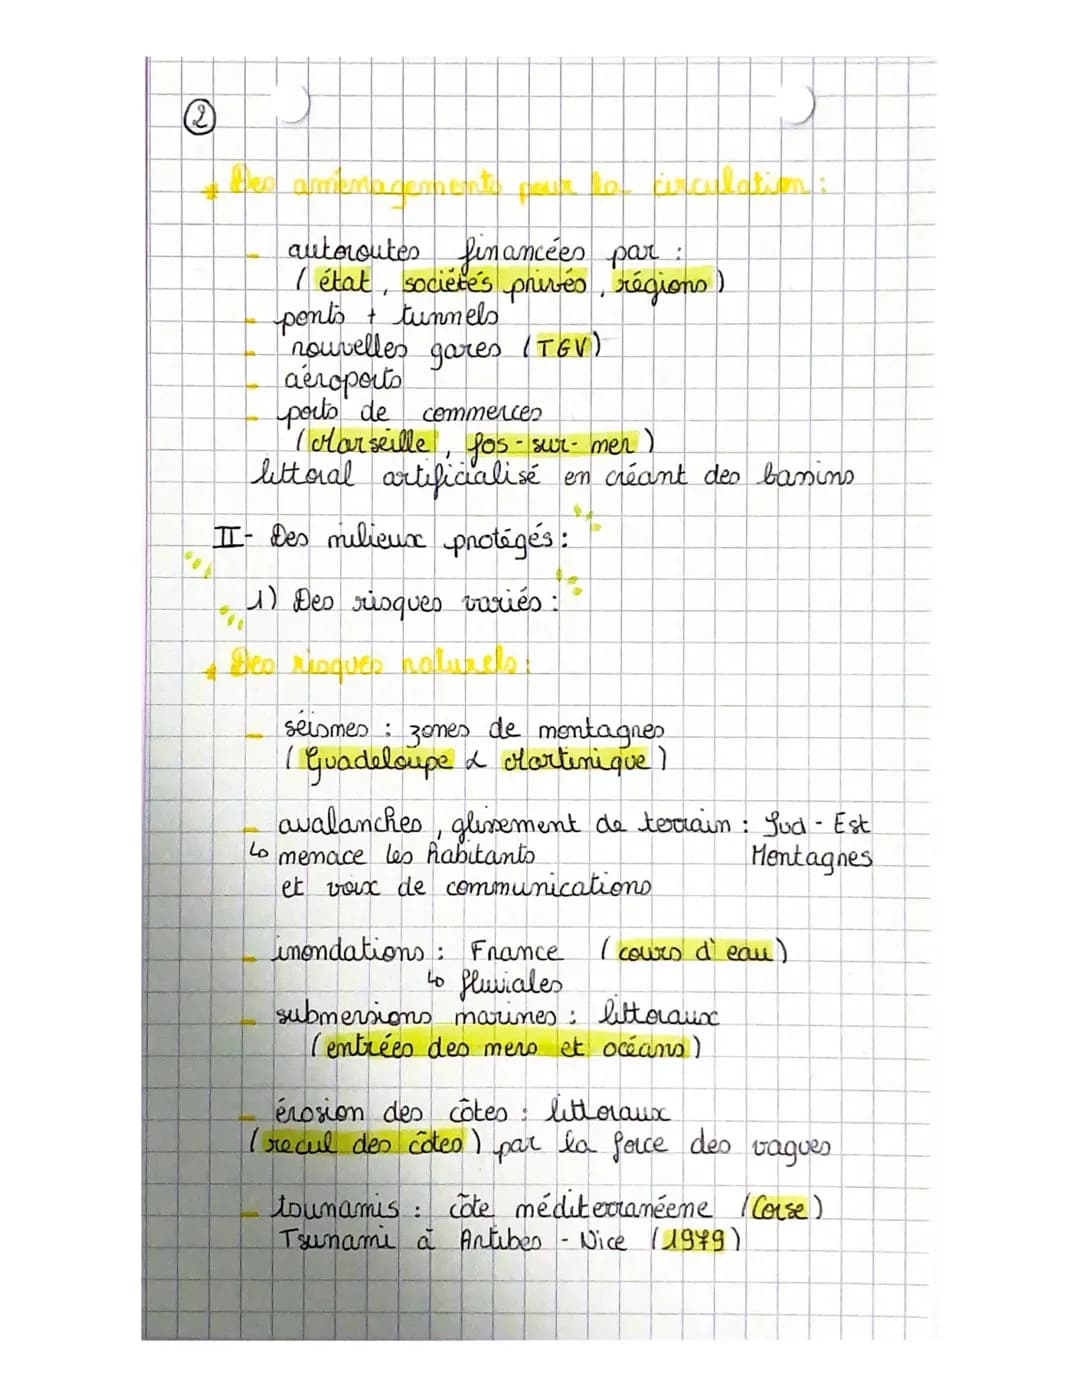 ②
* Des aménagements pour la circulation :
- autoroutes financées par :
( état, sociétés privés, régions )
- ponts + tunnels
- nouvelles gares (TGV)
- aéroports
- ports de commerces
( Marseille, fos-sur-mer )
littoral artificialisé en créant des bassins
II- Des milieux protégés :
1) Des risques variés :
* Des risques naturels :
- séismes : zones de montagnes
( Guadeloupe & Martinique )
- avalanches, glissement de terrain : Sud-Est
↳ menace les habitants Montagnes
et voix de communications
- inondations : France ( cours d'eau )
↳ fluviales
- submersions marines : littoraux
( entrées des mers et océans )
- érosion des côtes : littoraux
( recul des côtes ) par la force des vagues
- tsunamis : côte méditerranéeme ( Corse )
Tsunami à Antibes - Nice ( 1979 )